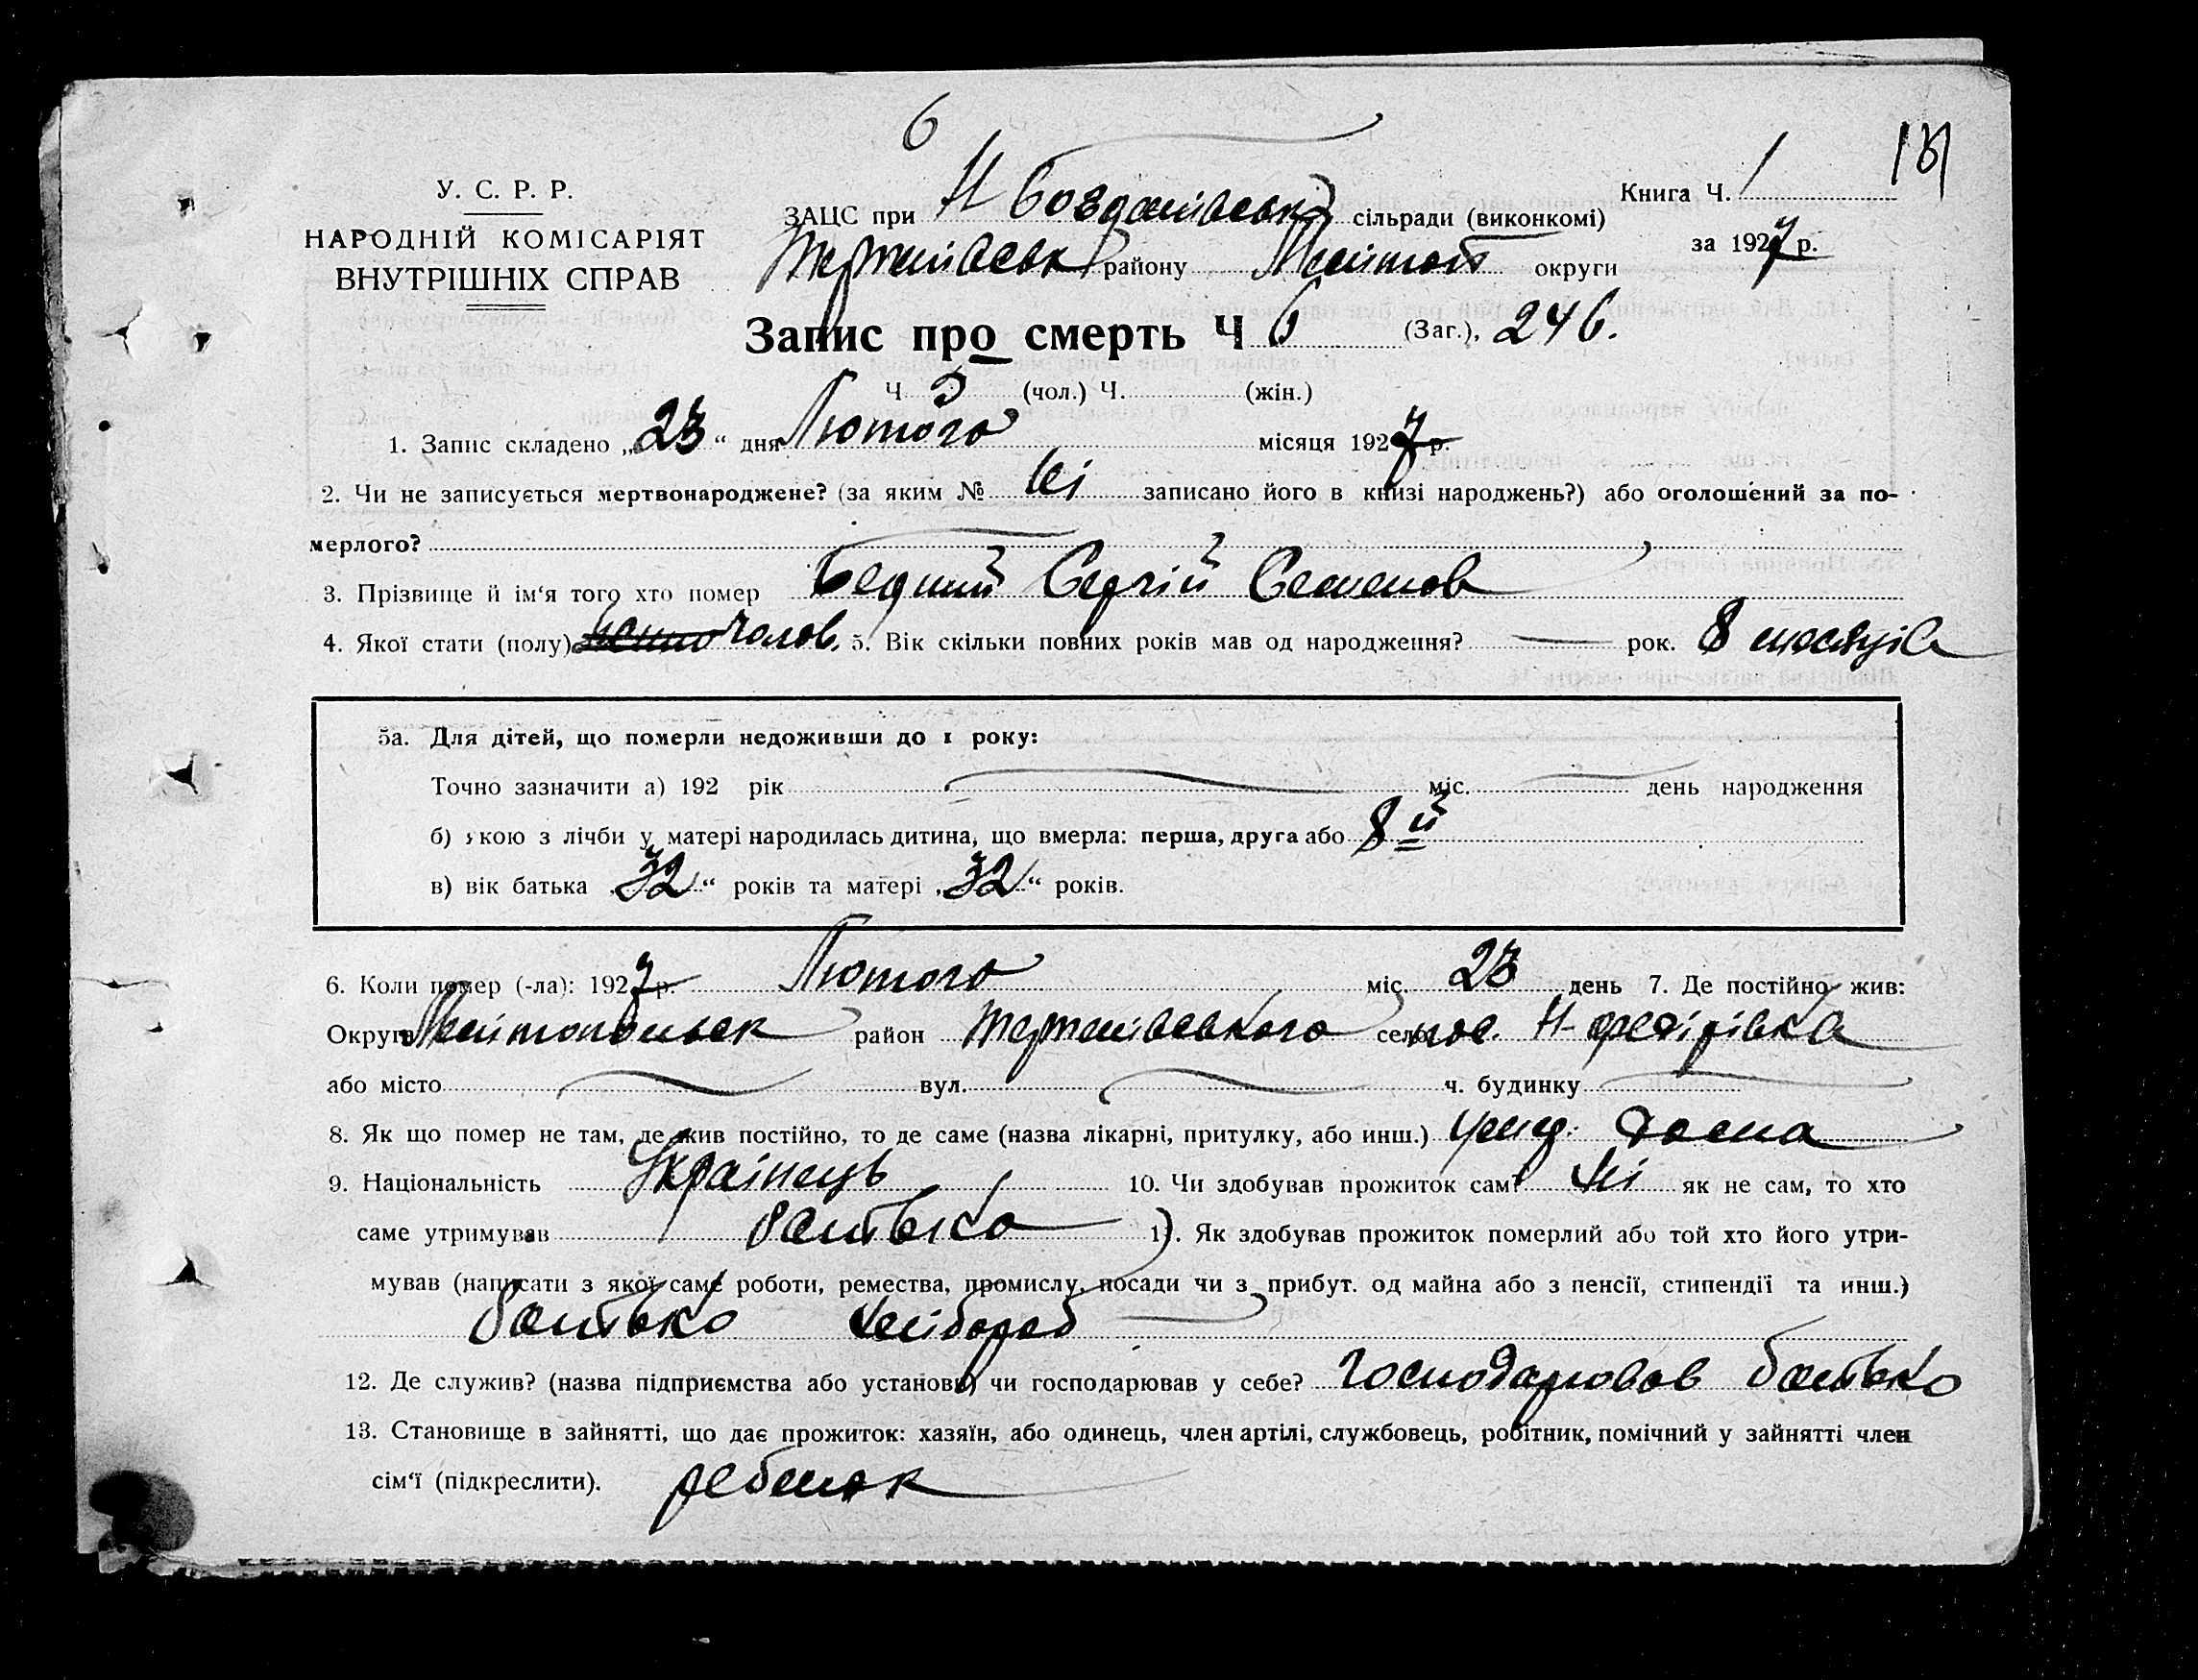 6
131
У. С. Р. Р.
НАРОДНІЙ КОМІСАРІЯТ
ВНУТРІШНІХ СПРАВ
ЗАЦС при Н Богданівськ сільради (виконкомі)
Книга Ч. 1
району Меліт округи
за 1927 р.
Запис про смерть Ч 6 (Заг.), 246.
Ч 5 (чол.) Ч. (жін.)
1. Запис складено „23“ дня Лютого місяця 1927 р.
2. Чи не записується мертвонароджене? (за яким № Ні записано його в книзі народжень?) або оголошений за по-
мерлого?
3. Прізвище й ім‘я того хто помер Бедний Сергій Семенов
4. Якої стати (полу) чолов. 5. Вік скільки повних років мав од народження? — рок. 8 місяців
5а. Для дітей, що померли недоживши до 1 року:
Точно зазначити а) 192 рік міс. день народження
б) якою з лічби у матері народилась дитина, що вмерла: перша, друга або 8й
в) вік батька „32“ років та матері „32“ років.
6. Коли помер (-ла): 1927 р. Лютого міс. 23 день 7. Де постійно жив:
Округа Мелітопольськ район село пос. Н-Федорівка
або місто вул. ч. будинку
8. Як що помер не там, де жив постійно, то де саме (назва лікарні, притулку, або инш.) дома
9. Національність Українець 10. Чи здобував прожиток сам? Ні як не сам, то хто
саме утримував батько 11. Як здобував прожиток померлий або той хто його утри-
мував (написати з якої саме роботи, ремества, промислу, посади чи з прибут. од майна або з пенсії, стипендії та инш.)
батько хлібороб
12. Де служив? (назва підприємства або установи) чи господарював у себе? господарював батько
13. Становище в зайнятті, що дає прожиток: хазяїн, або одинець, член артілі, службовець, робітник, помічний у зайнятті член
сім‘ї (підкреслити). ребенок